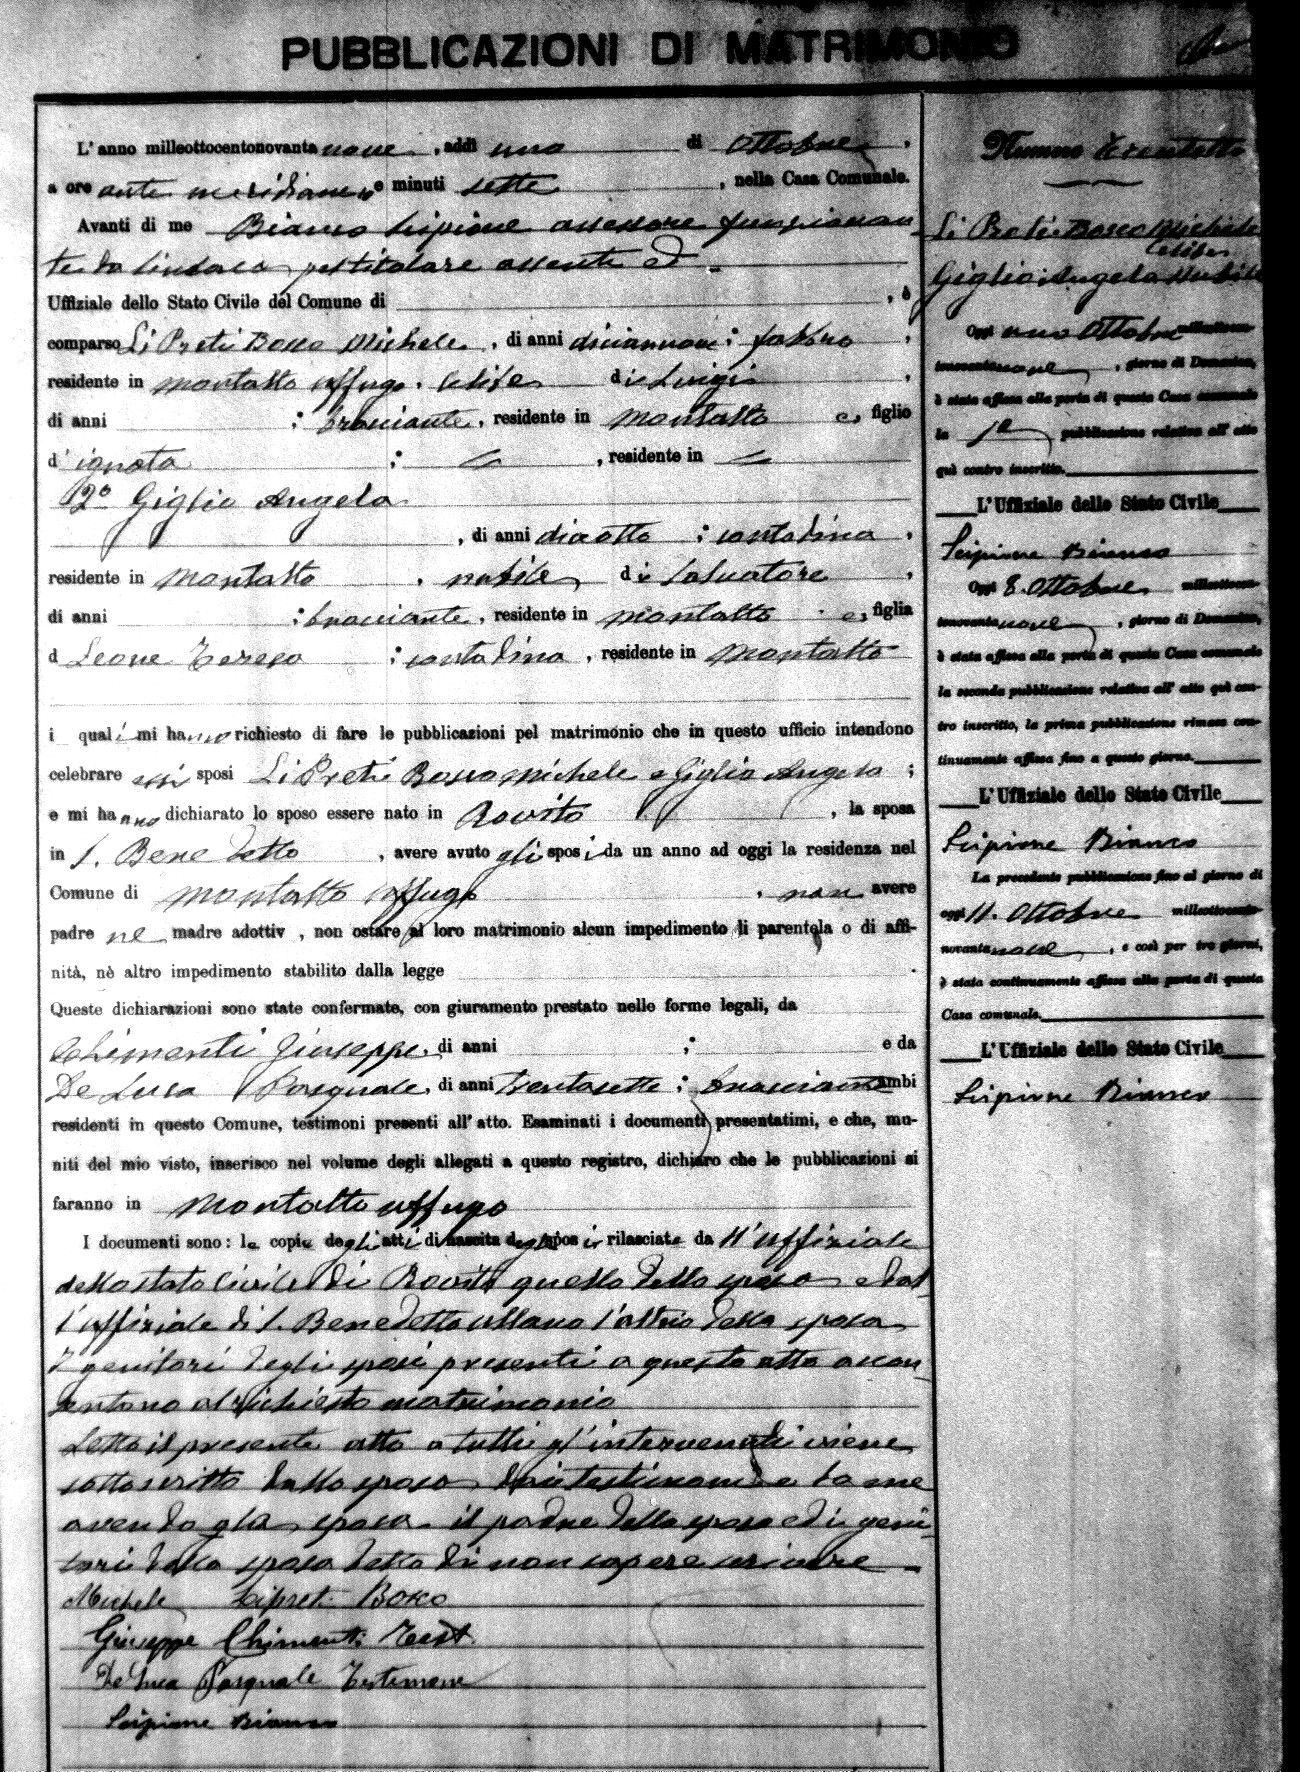 PUBBLICAZIONI DI MATRIMONIO
L'anno milleottocentonovanta nove, addì uno di Ottobre,
a ore ante meridiane e minuti sette, nella Casa Comunale.
Avanti di me Bianco Scipione assessore funzionan-
te da sindaco pel titolare assente ed
Uffiziale dello Stato Civile del Comune di , è
comparso Li Preti Bosco Michele, di anni diciannove; fabbro,
residente in Montalto Uffugo, celibe di Luigi,
di anni ; bracciante, residente in Montalto e, figlio
d'ignota ; , residente in
2° Giglio Angela
, di anni diciotto ; contadina,
residente in Montalto, nubile di Salvatore,
di anni ; bracciante, residente in Montalto e, figlia
d Leone Teresa ; contadina, residente in Montalto
i quali mi hanno richiesto di fare le pubblicazioni pel matrimonio che in questo ufficio intendono
celebrare essi sposi Li Preti Bosco Michele e Giglio Angela ;
e mi hanno dichiarato lo sposo essere nato in Rovito , la sposa
in S. Benedetto , avere avuto gli sposi da un anno ad oggi la residenza nel
Comune di Montalto Uffugo , non avere
padre nè madre adottiv , non ostare al loro matrimonio alcun impedimento di parentela o di affi-
nità, nè altro impedimento stabilito dalla legge .
Queste dichiarazioni sono state confermate, con giuramento prestato nelle forme legali, da
Chimenti Giuseppe, di anni ; e da
De Luca Pasquale, di anni trentasette ; bracciante ambi
residenti in questo Comune, testimoni presenti all'atto. Esaminati i documenti presentatimi, e che, mu-
niti del mio visto, inserisco nel volume degli allegati a questo registro, dichiaro che le pubblicazioni si
faranno in Montalto Uffugo
I documenti sono: le copie degli atti di nascita degli sposi rilasciate da ll'uffiziale
dello stato Civile di Rovito quella dello sposo e dal-
l'uffiziale di S. Benedetto Ullano l'altra della sposa
I genitori degli sposi presenti a questo atto accon-
sentono al richiesto matrimonio
Letto il presente atto a tutti gl'intervenuti viene
sottoscritto dallo sposo dai testimoni e da me
avendo la sposa il padre dello sposo ed i geni-
tori della sposa detto di non sapere scrivere
Michele Lipreti Bosco
Giuseppe Chimenti Test.
De Luca Pasquale Testimone
Scipione Bianco
Numero Trentotto
Li Preti Bosco Michele
celibe
Giglio Angela nubile
Oggi uno Ottobre milleottocen-
tonovanta nove, giorno di Domenica,
è stata affissa alla porta di questa Casa comunale
la 1a pubblicazione relativa all'atto
quì contro inscritto.
L'Uffiziale dello Stato Civile
Scipione Bianco
Oggi 8. Ottobre milleottocen-
tonovanta nove, giorno di Domenica,
è stata affissa alla porta di questa Casa comunale
la seconda pubblicazione relativa all'atto quì con-
tro inscritto, la prima pubblicazione rimasa con-
tinuamente affissa fino a questo giorno.
L'Uffiziale dello Stato Civile
Scipione Bianco
La precedente pubblicazione fino al giorno di
oggi 11. Ottobre milleottocento-
novanta nove, e così per tre giorni,
è stata continuamente affissa alla porta di questa
Casa comunale.
L'Uffiziale dello Stato Civile
Scipione Bianco